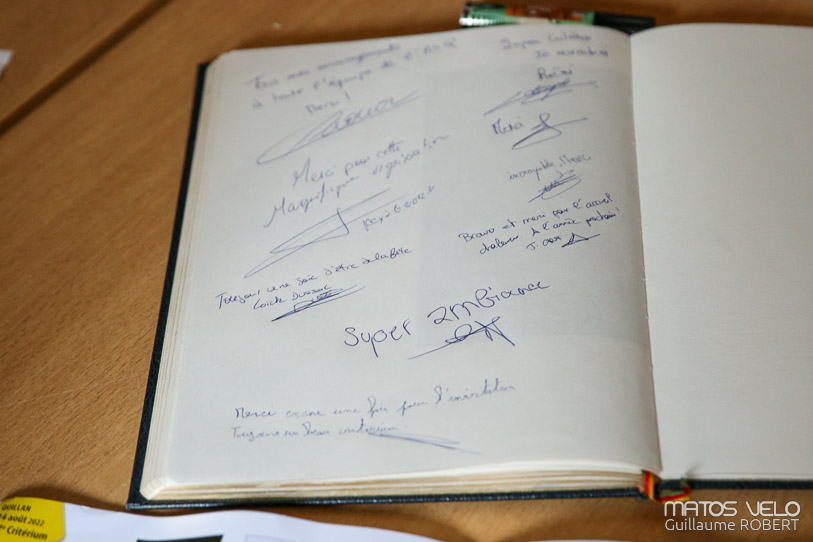 Tous mes encouragements
à toute l'équipe de
Bravo!
Merci pour cette
Magnifique organisation
Toujour une joie d'être a la fête
Loïck
Super ambiance
Merci encore une fois pour l'invitation
Toujours un beau critérium
Super
Merci
incroyable, Merci
Bravo et merci pour l'accueil
chaleureux A l'année prochaine!
QUILLAN
4 août 2022
Critérium
MATOS VELO
Guillaume ROBERT